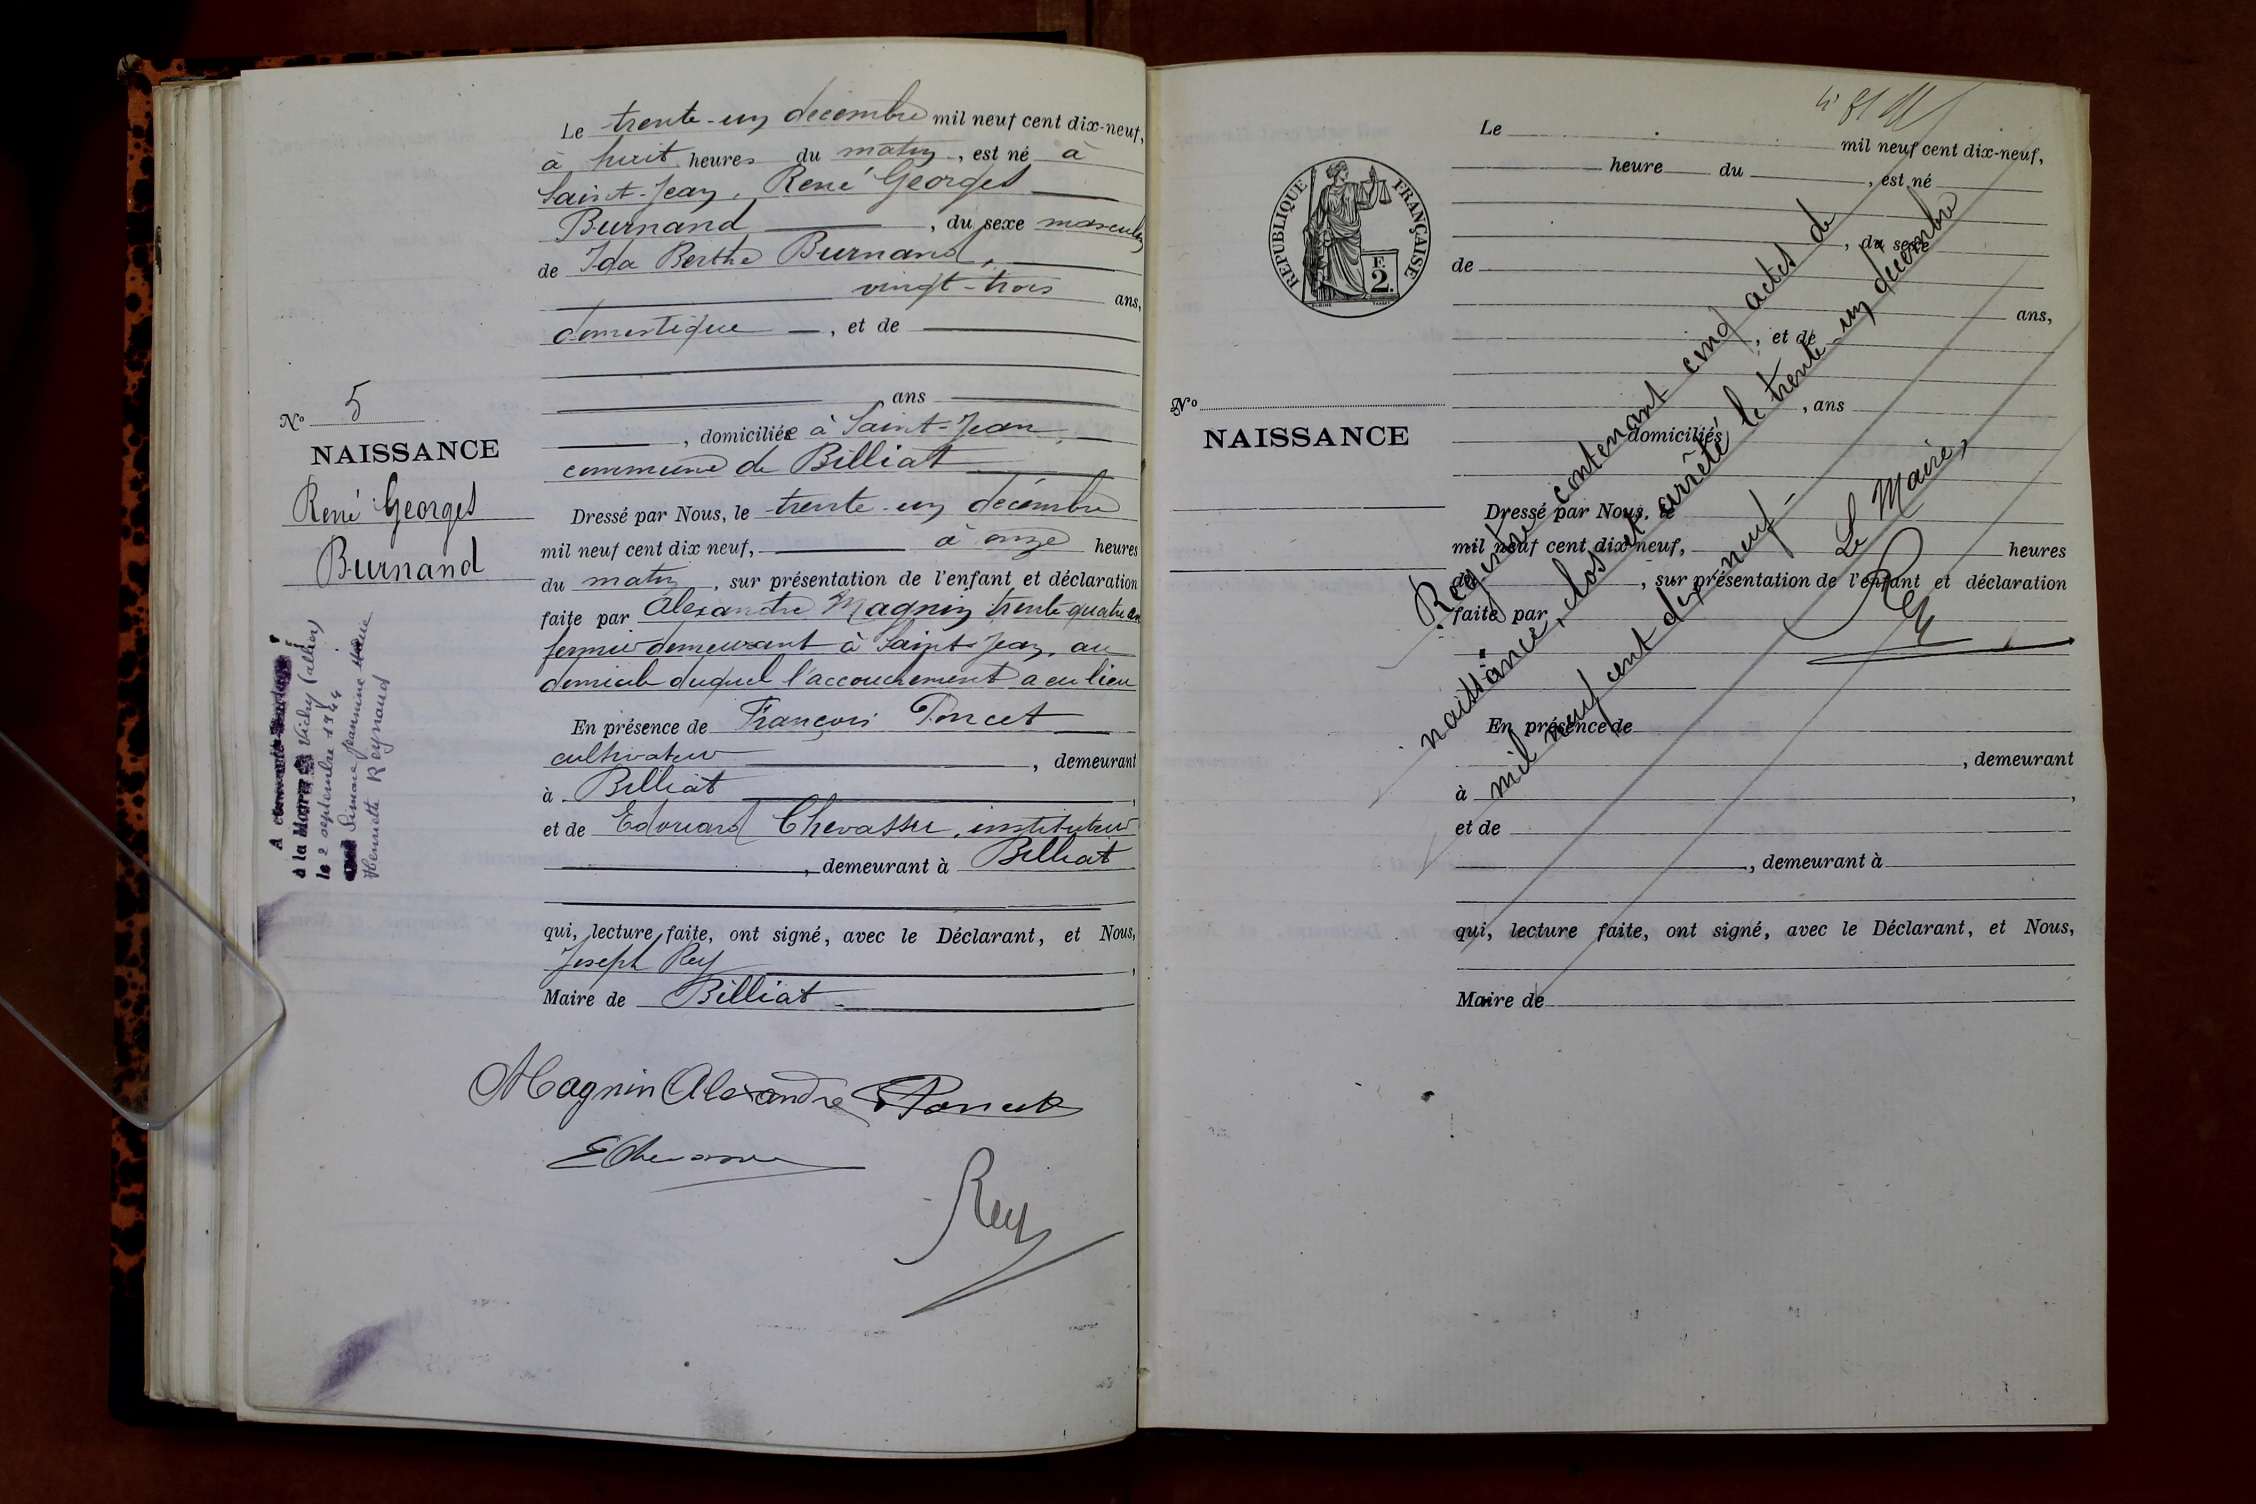 Le trente-un décembre mil neuf cent dix-neuf,
à huit heures du matin, est né à
Saint-Jean, René Georges
Burnand, du sexe masculin
de Ida Berthe Burnand,
vingt-trois ans,
domestique, et de
ans
, domiciliée à Saint-Jean,
commune de Billiat
Dressé par Nous, le trente-un décembre
mil neuf cent dix neuf, à onze heures
du matin, sur présentation de l'enfant et déclaration
faite par Alexandre Magnin, trente-quatre ans
fermier demeurant à Saint-Jean, au
domicile duquel l'accouchement a eu lieu
En présence de François Poncet
cultivateur, demeurant
à Billiat,
et de Edouard Chevassu, instituteur
, demeurant à Billiat
qui, lecture faite, ont signé, avec le Déclarant, et Nous,
Joseph Rey,
Maire de Billiat
Magnin Alexandre Poncet
E Chevassu
Rey
No 5
NAISSANCE
René Georges
Burnand
A
à la Mairie Vichy (allier)
le 2 septembre 1944
Simone Jeannine
Henriette Reynaud
Le mil neuf cent dix-neuf,
heure du, est né
, du sexe
de
ans,
, et de
, ans
domiciliés
Dressé par Nous, le
mil neuf cent dix-neuf, heures
du, sur présentation de l'enfant et déclaration
faite par
En présence de
, demeurant
à,
et de
, demeurant à
qui, lecture faite, ont signé, avec le Déclarant, et Nous,
Maire de
No
NAISSANCE
RÉPUBLIQUE FRANÇAISE
F.
2.
Registre contenant cinq actes de
naissance, clos et arrêté le trente-un décembre
mil neuf cent dix neuf.
Le Maire,
Rey